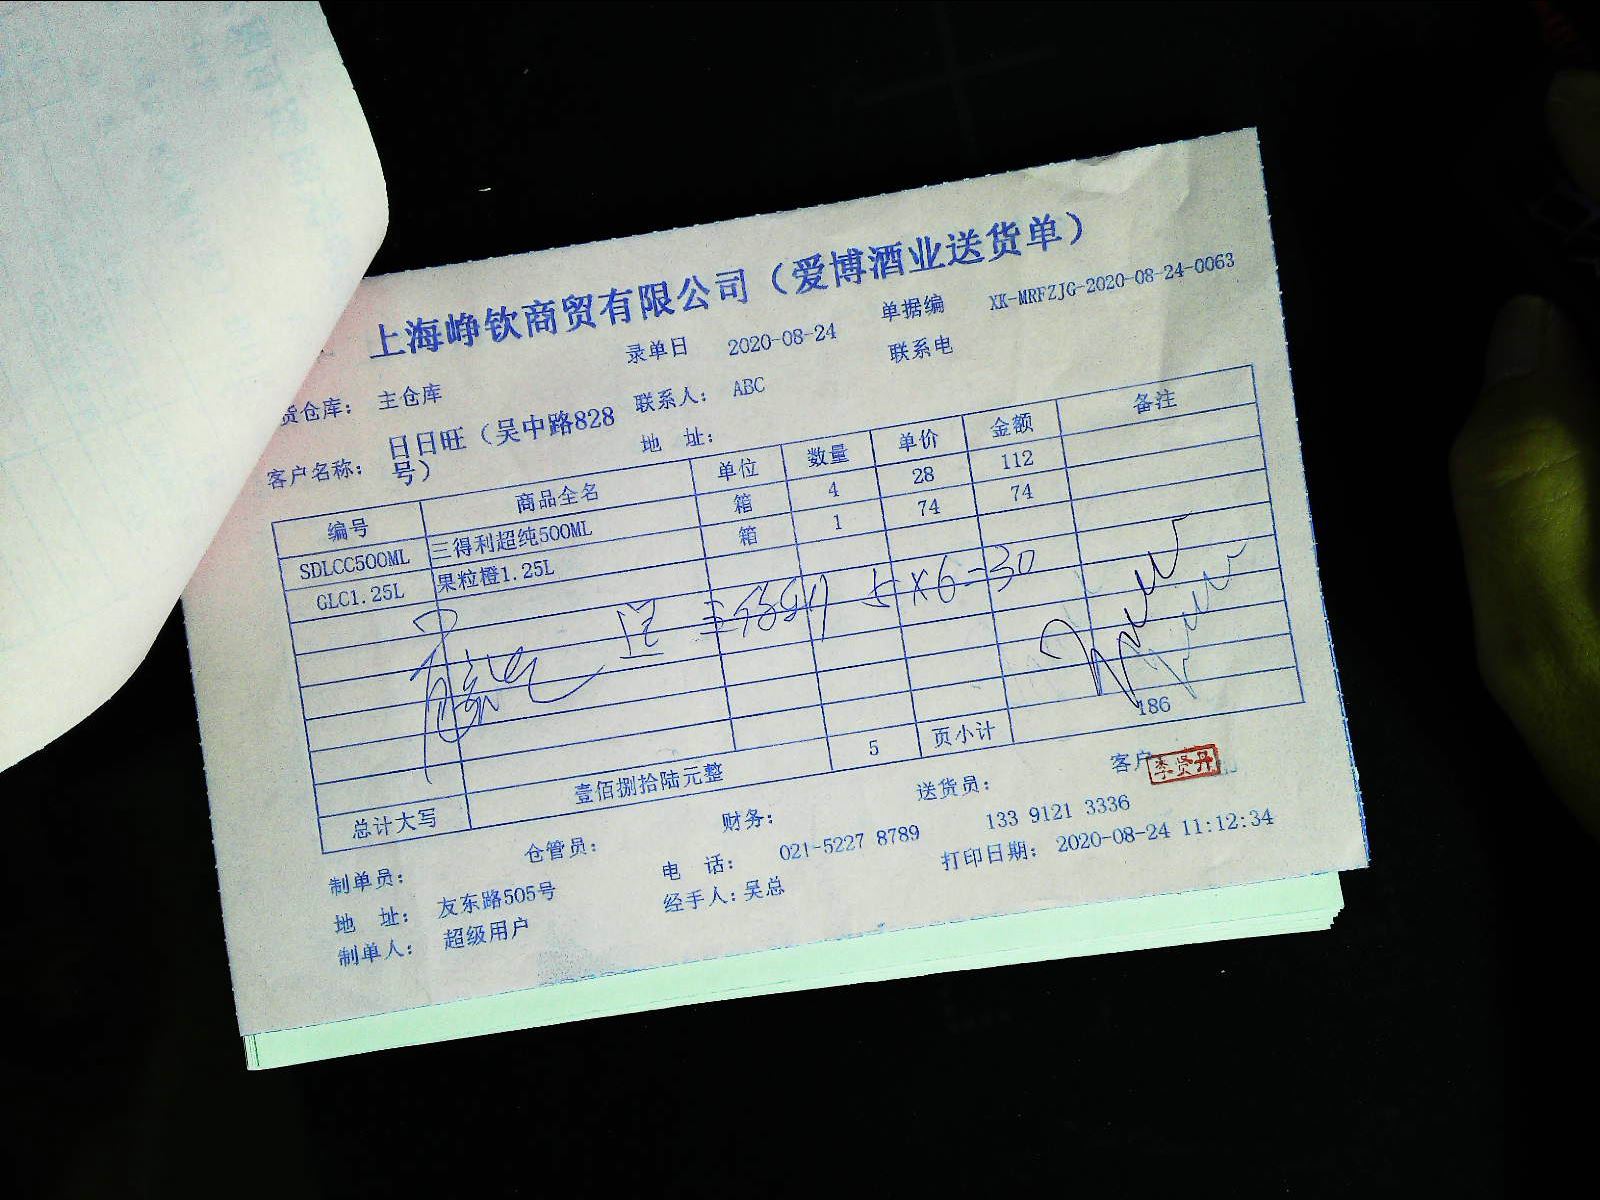 上海峥钦商贸有限公司（爱博酒业送货单）
录单日 2020-08-24 单据编 XK-MRFZJG-2020-08-24-0063
货仓库： 主仓库 联系人： ABC 联系电
客户名称： 日日旺（吴中路828号） 地 址：
编号 商品全名 单位 数量 单价 金额 备注
SDLCC500ML 三得利超纯500ML 箱 4 28 112
GLC1.25L 果粒橙1.25L 箱 1 74 74
5×6=30
总计大写 壹佰捌拾陆元整 5 页小计 186
制单员： 仓管员： 财务： 送货员： 客户
李贤丹
地 址： 友东路505号 电 话： 021-5227 8789 133 9121 3336
制单人： 超级用户 经手人：吴总 打印日期： 2020-08-24 11:12:34